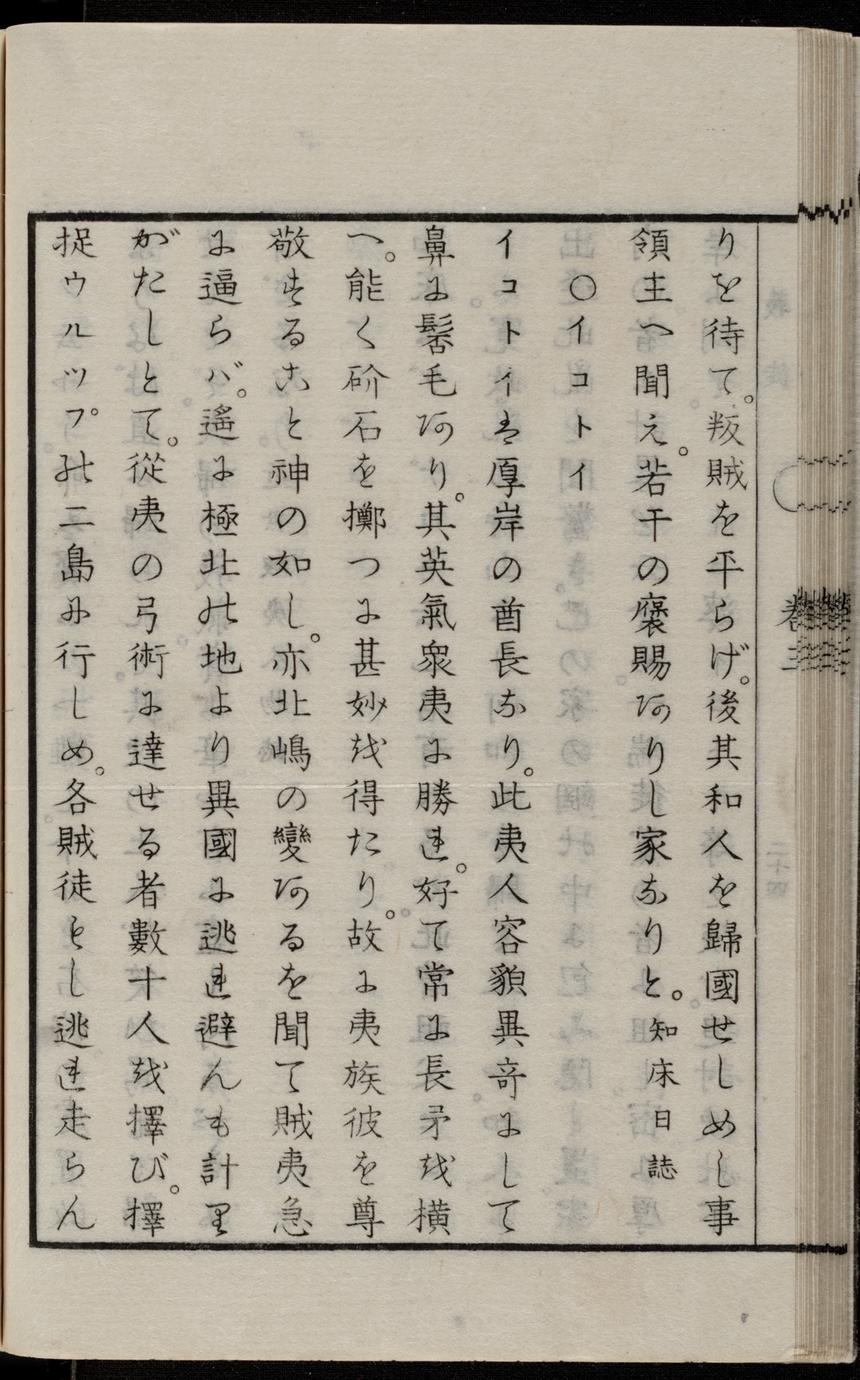 りを待て。叛賊を平らげ。後其和人を歸國せしめし事
領主へ聞え。若干の褒賜ありし家なりと。知床日誌
〇イコトイ
イコトイは厚岸の酋長なり。此夷人容貌異竒にして
鼻に髯毛あり。其英氣衆夷に勝れ。好て常に長矛を横
へ。能く砎石を擲つに甚妙を得たり。故に夷族彼を尊
敬することと神の如し。亦北嶋の變あるを聞て賊夷急
に逼らバ。遙に極北の地より異國に逃れ避んも計り
がたしとて。從夷の弓術に達せる者數十人を擇び。擇
捉ウルップの二島に行しめ。各賊徒もし逃れ走らん
巻三